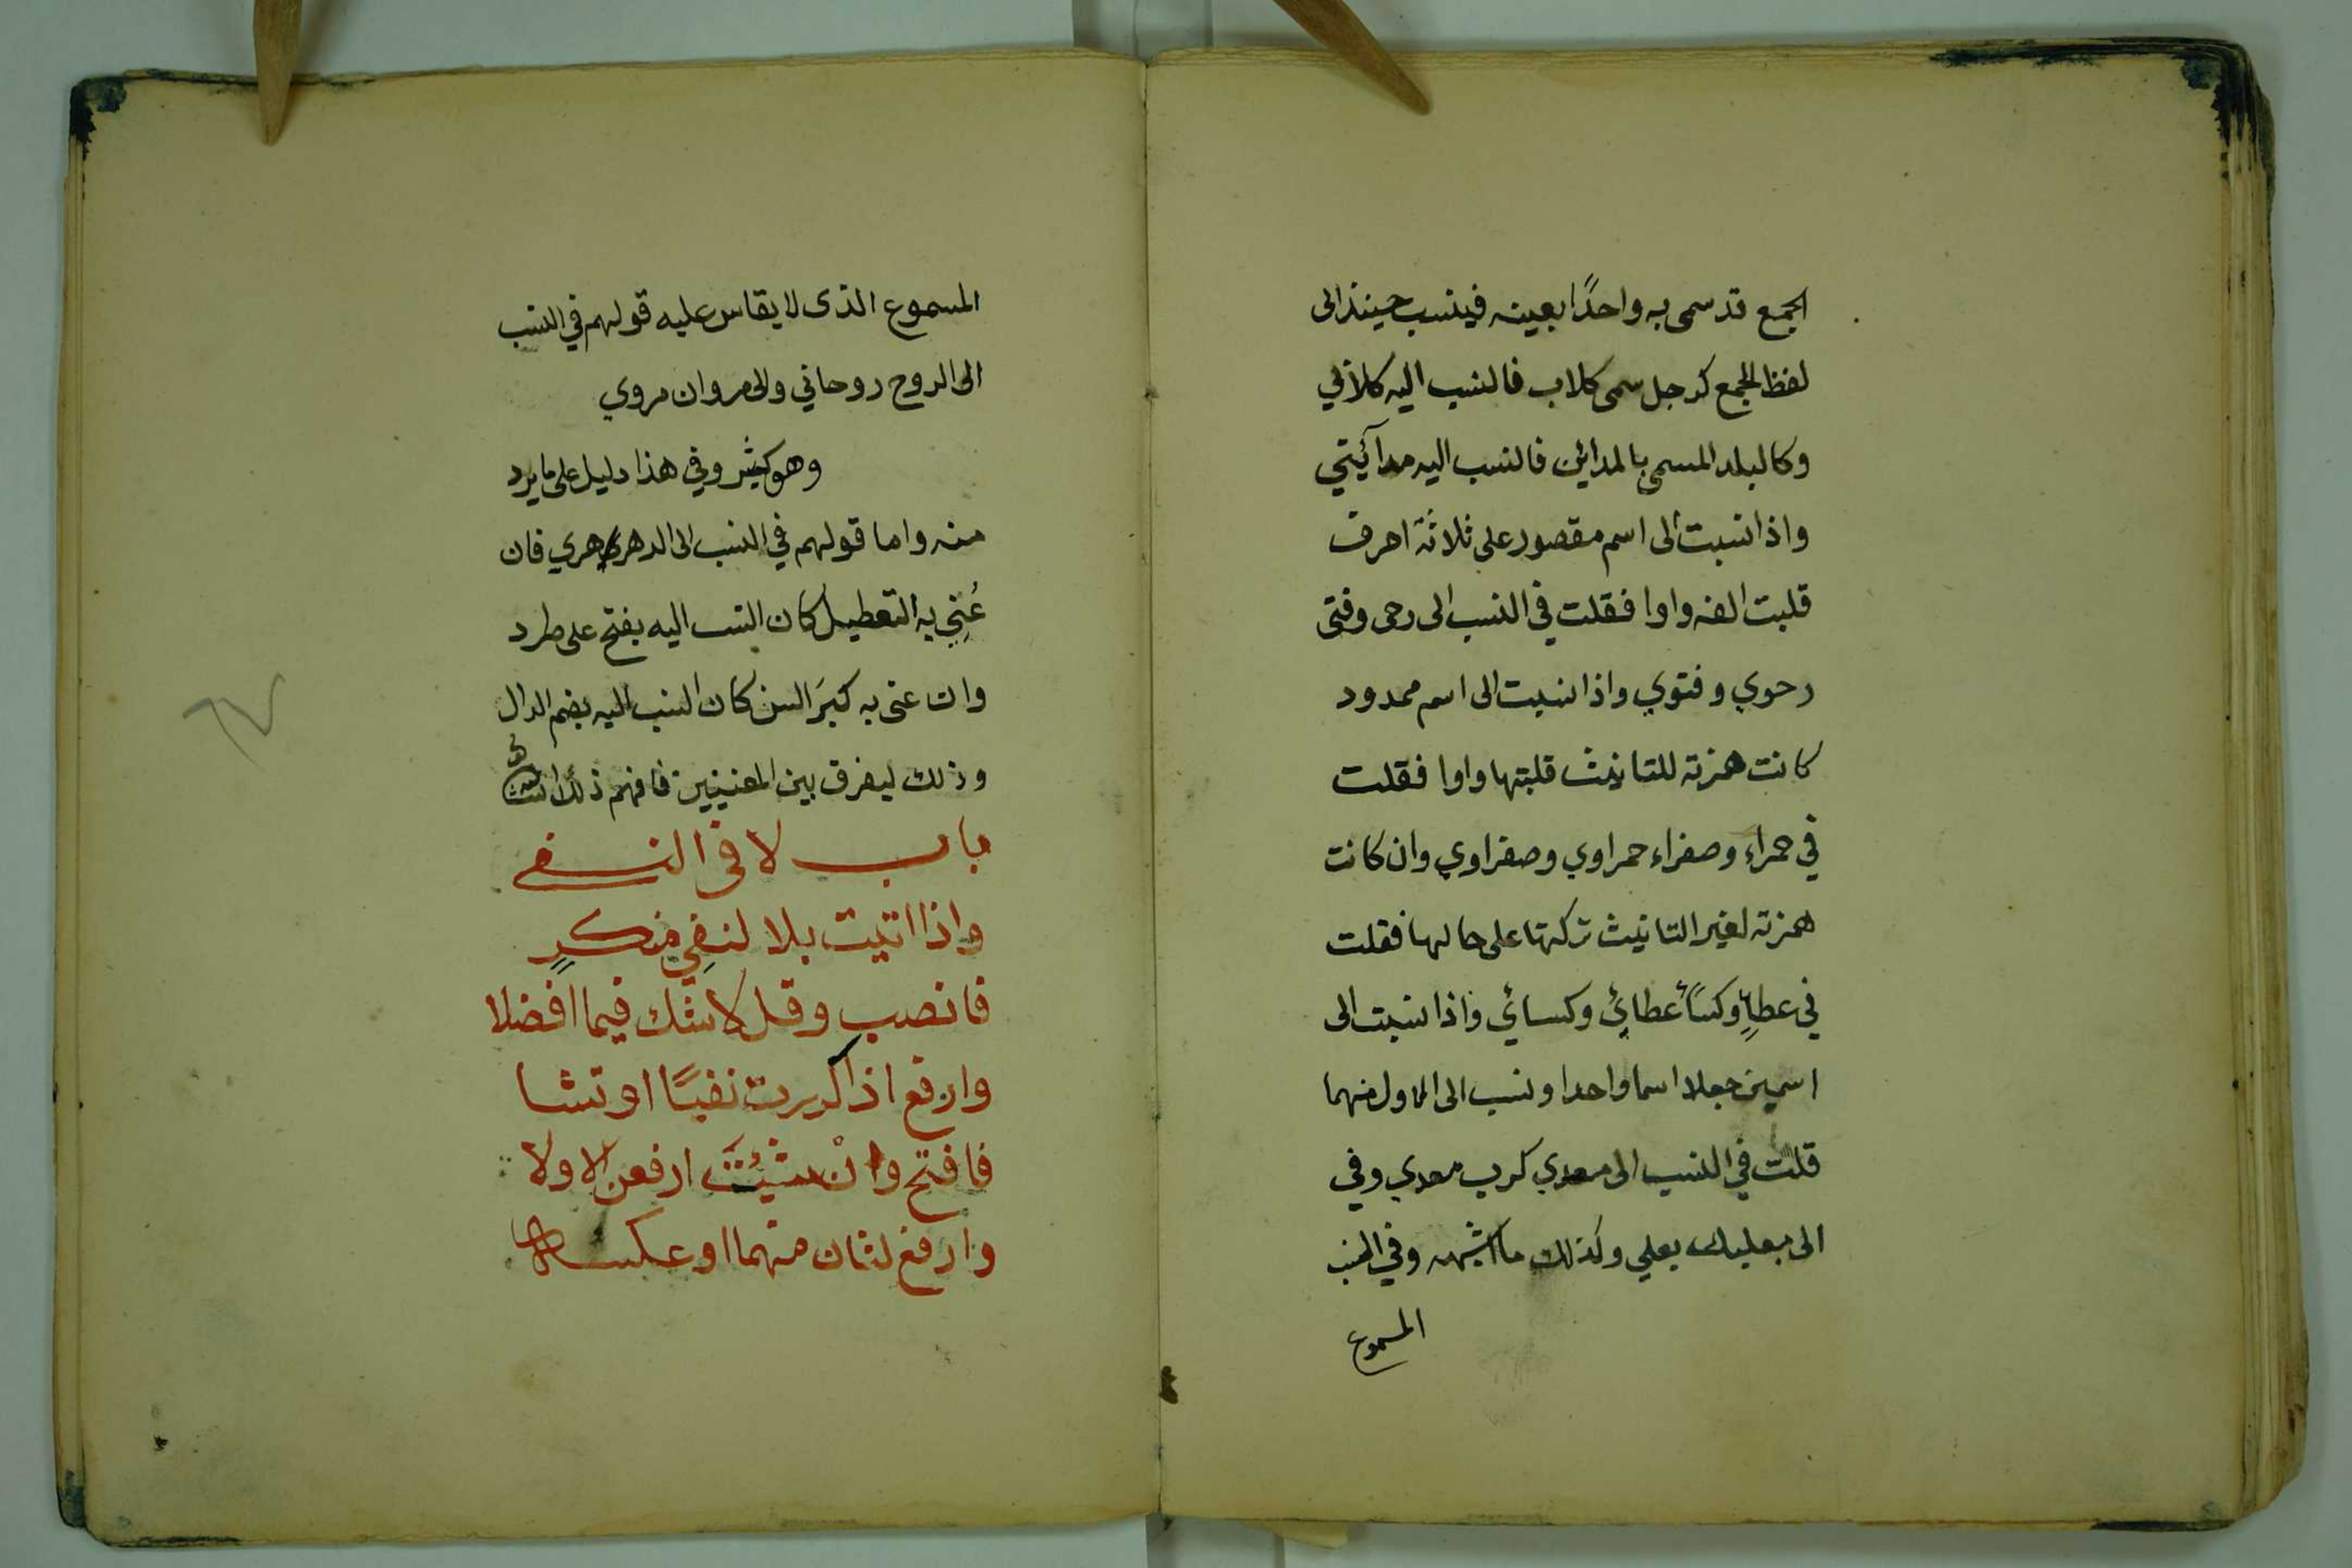 الجمع قد سمى به واحدًا بعينه فينسب حينئذ الى
لفظ الجمع كرجل سمى كلاب فالنسب اليه كلابي
وكالبلد المسمى بالمدائن فالنسب اليه مدآئيني
واذا نسبت الى اسم مقصور على ثلاثة احرف
قلبت الفه واوا فقلت في النسب الى رحى وفتى
رحوي وفتوي واذا نسبت الى اسم ممدود
كانت همزته للتانيث قلبتها واوا فقلت
في حمراء وصفراء حمراوي وصفراوي وان كانت
همزته لغير التانيث تركتها على حالها فقلت
في عطاءٍ وكساءً عطائي وكسائي واذا نسبت الى
اسمين جعلا اسما واحدا ونسب الى الاول منهما
قلت في النسب الى معدي كرب معدي وفي
الى بعلبك بعلي وكذلك ما اشبهه وفي النسب
المسموع
المسموع الذى لا يقاس عليه قولهم في النسب
الى الروح روحاني والى مروان مروي
وهو كثير وفي هذا دليل على ما يرد
منه واما قولهم في النسب الى الدهر دهري فان
عُنِي به التعطيل كان النسب اليه بفتح على طرد
وان عنى به كبَر السن كان النسب اليه بضم الدال
وذلك ليفرق بين المعنيين فافهم ذلك
باب لا في النفي
واذا اتيت بلا لنفِي منكرٍ
فانصب وقل لا شك فيما افضلا
وارفع اذا كررت نفيًا او تشا
فافتح وانْ شئتَ ارفعن الاولا
وارفع لثان منهما او عكسه